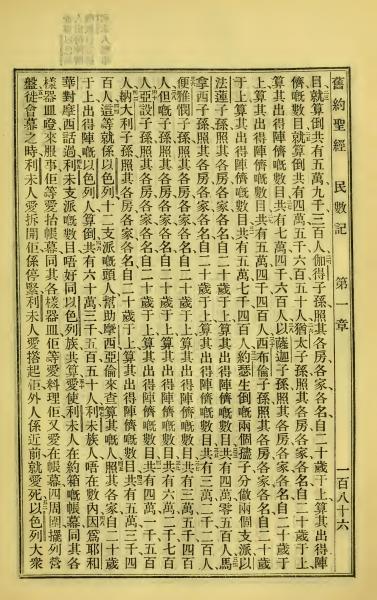 舊約聖經　民數記　第一章　一百八十六
目就算倒共有五萬九千三百人伽得子孫照其各房各家各名自二十歲于上算其出得陣
儕嘅數目就算倒共有四萬五千六百五十人猶太子孫照其各房各家各名自二十歲于上
算其出得陣儕嘅數目共有七萬四千六百人以薩迦子孫照其各房各家各名自二十歲于
上算其出得陣儕嘅數目共有五萬四千四百人西布倫子孫照其各房各家各名自二十歲
于上算其出得陣儕嘅數目共有五萬七千四百人約瑟生倒嘅兩個㜽子分做兩個支派以
法蓮子孫照其各房各家各名自二十歲于上算其出得陣儕嘅數目共有四萬零五百人馬
拿西子孫照其各房各家各名自二十歲于上算其出得陣儕嘅數目共有三萬二千二百人
便雅憫子孫照其各房各家各名自二十歲于上算其出得陣儕嘅數目共有三萬五千四百
人但嘅子孫照其各房各家各名自二十歲于上算其出得陣儕嘅數目共有六萬二千七百
人亞設子孫照其各房各家各名自二十歲于上算其出得陣儕嘅數目共有四萬一千五百
人納大利子孫照其各房各家各名自二十歲于上算其出得陣儕嘅數目共有五萬三千四
百人這等就係以色列十二支派嘅頭人幫助摩西亞倫來查算其嘅人照其各家自二十歲
于上出得陣嘅以色列人算倒共有六十萬三千五百五十人利未族人唔在數內因爲耶和
華對摩西話過利未支派嘅數目唔好同以色列族共算愛使利未人在約箱嘅帳幕同其各
樣器皿噔來服事佢等愛抬帳幕同其各樣器皿佢等愛料理佢又愛在帳幕四周圍擺列營
盤徙會幕之時利未人愛拆開佢係停緊利未人愛搭起佢外人係近前就愛死以色列大衆